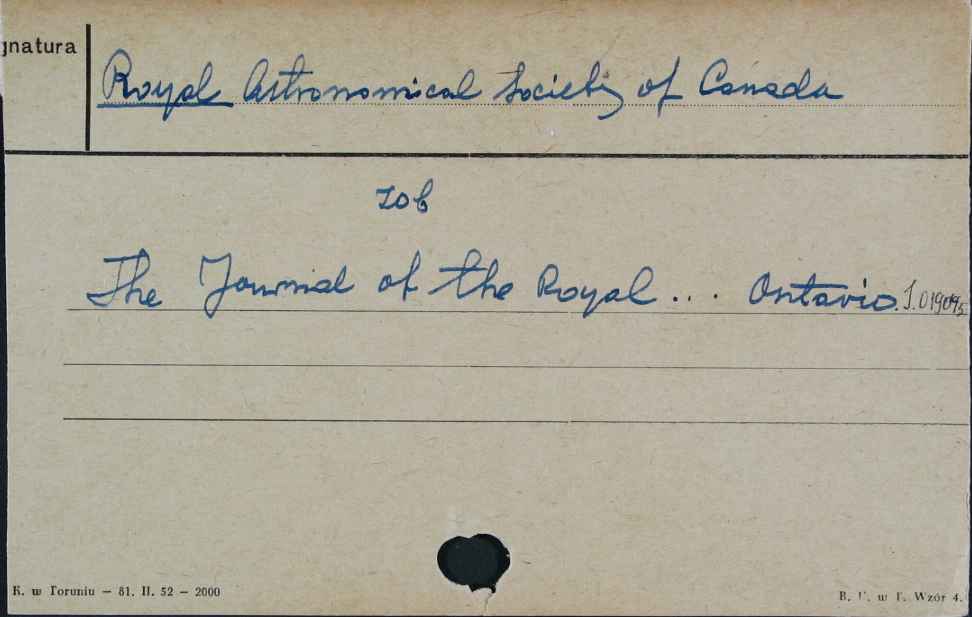 gnatura
Royal Astronomical Society of Canada
zob
The Journal of the Royal ... Ontario. J.01909/5
K. w Toruniu — 81. II. 52 — 2000
B. U. w T. Wzór 4.